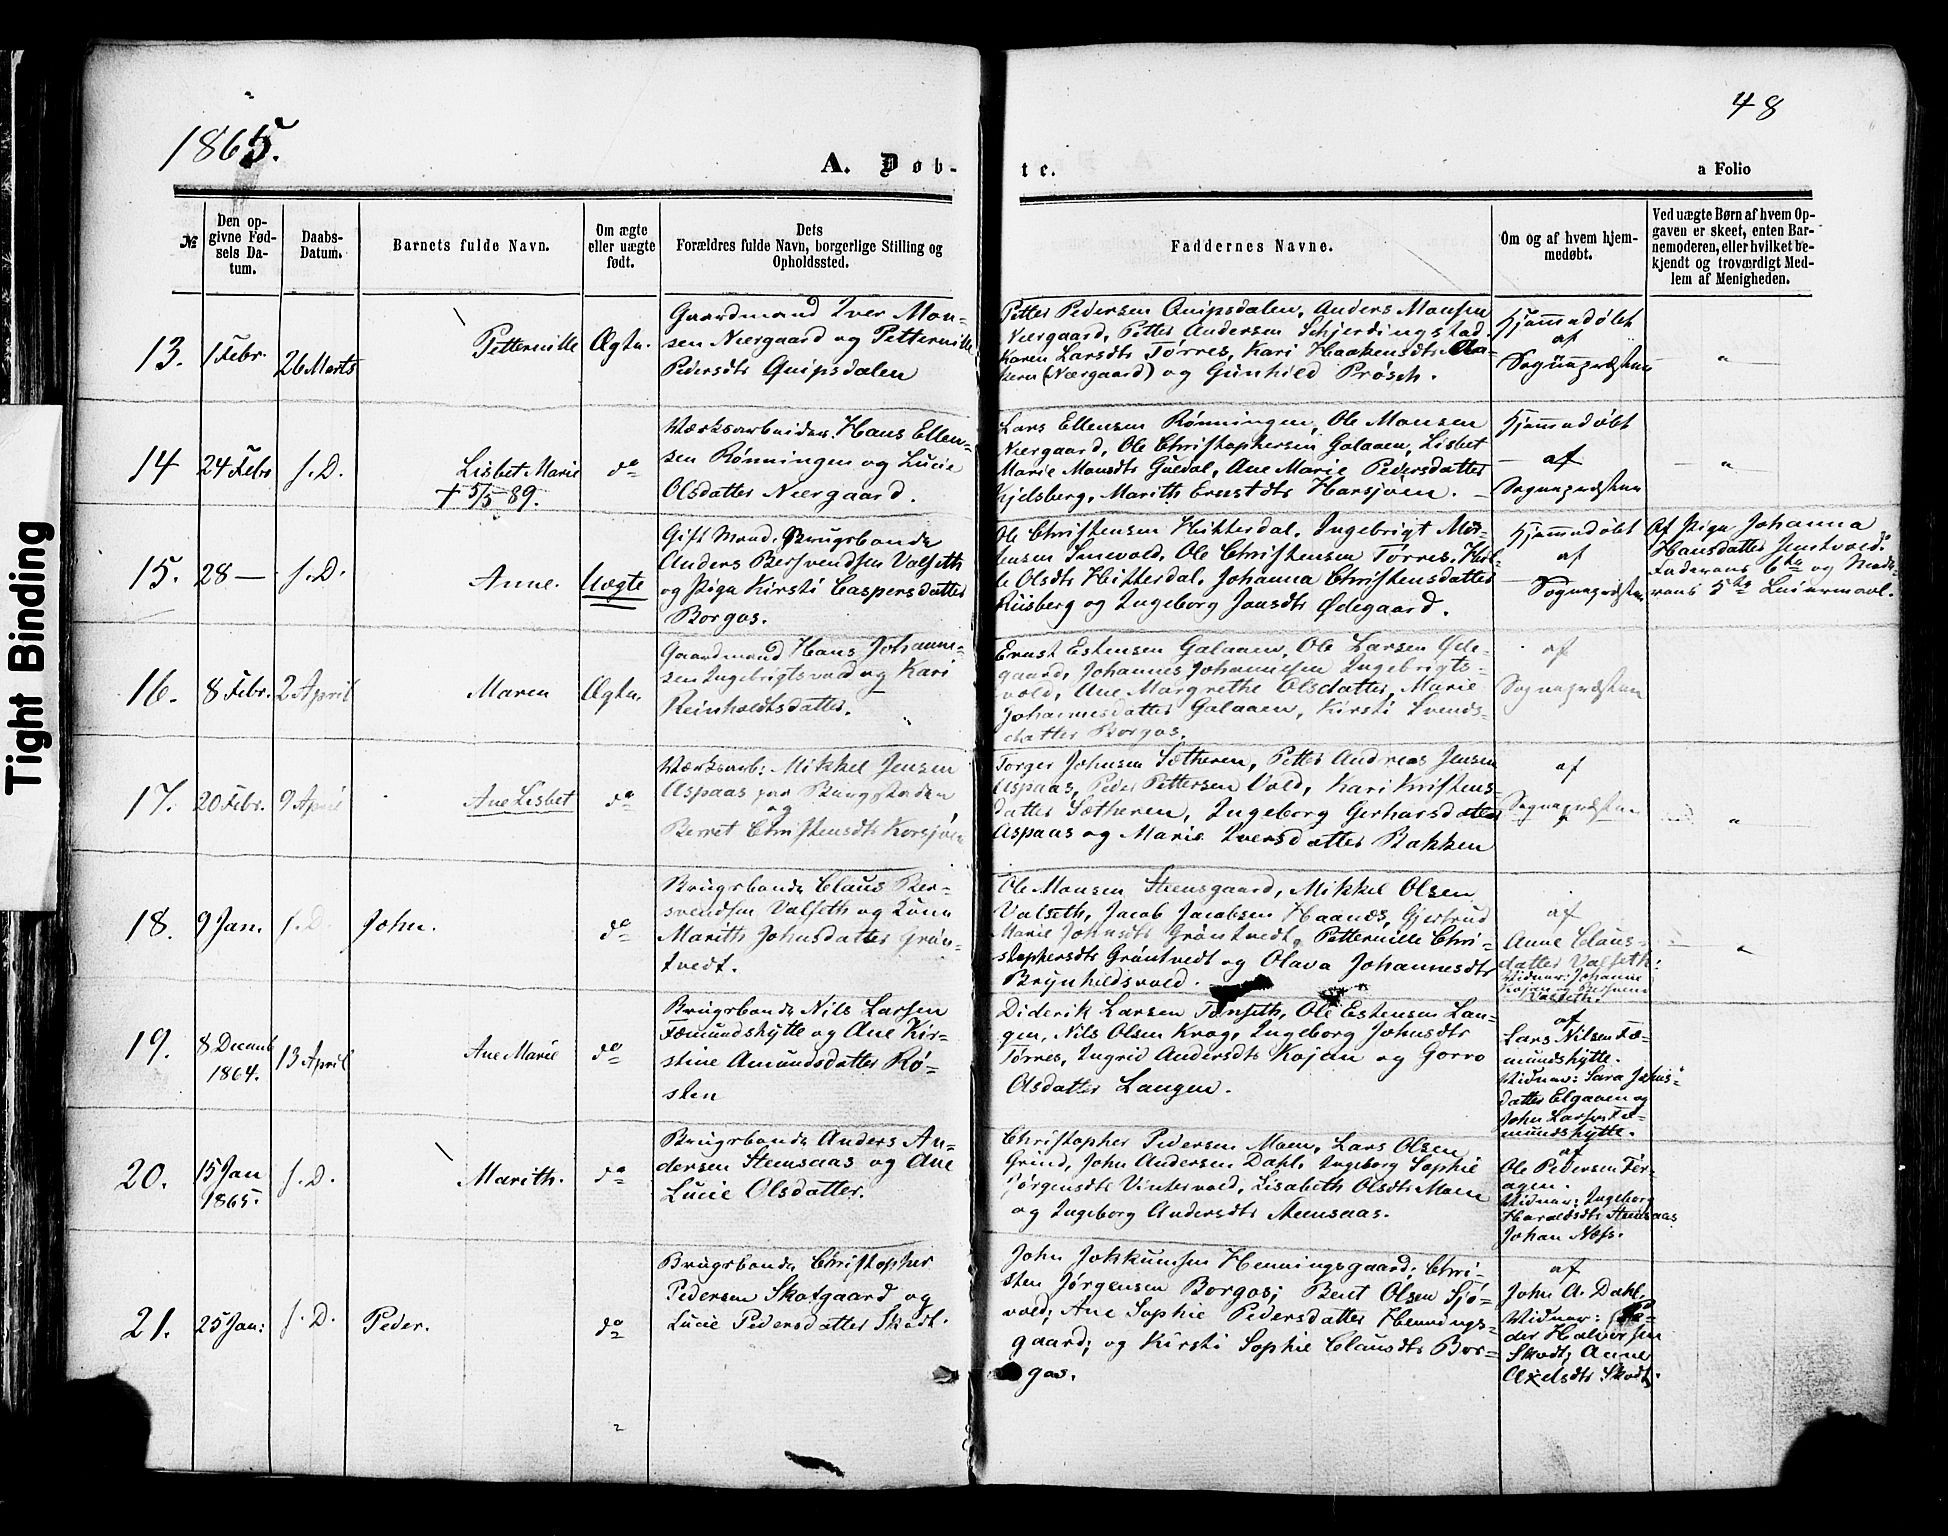 1865.
48
A. Døb-
te.
a Folio
№
Den op-
givne Fød-
sels Da-
tum.
Daabs-
Datum.
Barnets fulde Navn.
Om ægte
eller uægte
født.
Dets
Forældres fulde Navn, borgerlige Stilling og
Opholdssted.
Faddernes Navne.
Om og af hvem hjem-
medøbt.
Ved uægte Børn af hvem Op-
gaven er skeet, enten Bar-
nemoderen, eller hvilket be-
kjendt og troværdigt Med-
lem af Menigheden.
13.
1 Febr.
26 Marts
Petternille
Ægte.
Gaardmand Iver Mon-
sen Nærgaard og Petternille
Pedersdtr Quipsdalen
Petter Pedersen Quipsdalen, Anders Monsen
Nærgaard, Petter Andersen Schjerdingstad,
Karen Larsdtr Tørres, Kari Haakensdtr Aa-
keren (Nærgaard) og Gunhild Prøsch.
Hjemmedøbt
af
Sognepræsten
— „ —
14
24 Febr.
s. D.
Lisbet Marie
+ 5/5 89.
do
Værksarbeider Hans Ellen-
sen Rønningen og Lucie
Olsdatter Nærgaard.
Lars Ellensen Rønningen, Ole Monsen
Nærgaard, Ole Christophersen Galaaen, Lisbet
Marie Monsdtr Guldal, Ane Marie Pedersdatter
Kjelsberg, Marith Ernstdtr Harsjøen.
Hjemmedøbt
— af
Sognepræsten
— „
15.
28 —
s. D.
Anne.
Uægte
Gift Mand, Brugsbonde
Anders Bersvendsen Valseth
og Pige Kirsti Caspersdatter
Borgos.
Ole Christensen Hitterdal, Ingebrigt Mor-
tensen Enevold, Ole Christensen Tørres,
Olsdtr Hitterdal, Johanna Christensdatter
Riisberg og Ingeborg Jonsdtr Ødegaard.
Hjemmedøbt
af
— Sognepræsten
Af Pige Johanna
Hansdatter
Faderens 6te og Mode-
rens 5te Leiermaal.
16.
8 Febr.
2 April
Maren
Ægte.
Gaardmand Hans Johanne-
sen Ingebrigtsvold og Kari
Reinholdtsdatter.
Ernst Estensen Galaaen, Ole Larsen Øde-
gaard, Johannes Johannesen Ingebrigts-
vold, Ane Margrethe Olsdatter, Marie
Johannesdatter Galaaen, Kirsti Svends-
datter Borgos.
af
Sognepræsten
17.
20 Febr.
9 April
Ane Lisbet
do
Værksarb: Mikkel Jensen
Aspaas paa Bergstaden
og
Berret Christensdtr Korsjøen
Torger Johnsen Sætheren, Petter Andreas Jensen
Aspaas, Peder Pettersen Vold, Kari Kristens-
datter Sætheren, Ingeborg Gerhardsdatter
Aspaas og Marie Iversdatter Bakken
af
Sognepræsten
„
18.
9 Jan.
s. D.
John.
do
Brugsbonde Claus Ber-
svendsen Valseth og Kone
Marith Johnsdatter Grøn-
tvedt.
Ole Monsen Steensgaard, Mikkel Olsen
Valseth, Jacob Jacobsen Haanæs, Gjertrud
Marie Johnsdtr Grøntvedt, Petternille Chri-
stophersdtr Grøntvedt og Olava Johannesdtr
Brynhildsvold.
af
Anne Claus-
datter Valseth:
Vidner: Johanne
Kojan og Bersvend
Valseth.
„
19.
8 Decemb
1864.
13 April
Ane Marie
do
Brugsbonde Nils Larsen
Fæmundshytte og Ane Kir-
stine Amundsdatter Rø-
sten
Diderik Larsen Tønseth, Ole Estensen Lan-
gen, Nils Olsen Krag, Ingeborg Johnsdtr
Tørres, Ingrid Andersdtr Kojan og Gorro
Olsdatter Langen.
af
Lars Nilsen Fæ-
mundshytte.
Vidner: Sara Johns-
datter Elgaaen og
John Larsen Fæ-
mundshytte.
20.
15 Jan
1865.
s. D.
Marith.
do
Brugsbonde Anders An-
dersen Steensaas og Ane
Lucie Olsdatter.
Christopher Pedersen Moen, Lars Olsen
Grind, John Andersen Dahl, Ingeborg Sophie
Jørgensdtr Vintervold, Lisabeth Olsdtr Moen
og Ingeborg Andersdtr Steensaas.
af
Ole Pedersen Fer-
agen.
Vidner: Ingeborg
Haraldsdtr Steensaas
Johan Næss.
21.
25 Jan:
s. D.
Peder.
do
Brugsbonde Christopher
Pedersen Skotgaard og
Lucie Pedersdatter Skodt.
John Jokkumsen Henningsgaard; Chri-
sten Jørgensen Borgos; Bent Olsen Sjø-
vold; Ane Sophie Pedersdatter Hennings-
gaard; og Kirsti Sophie Clausdtr Bor-
gos.
af
John A. Dahl.
Vidner: Pe-
der Halvorsen
Skodt; Anne
Axelsdtr Skodt.
Tight Binding